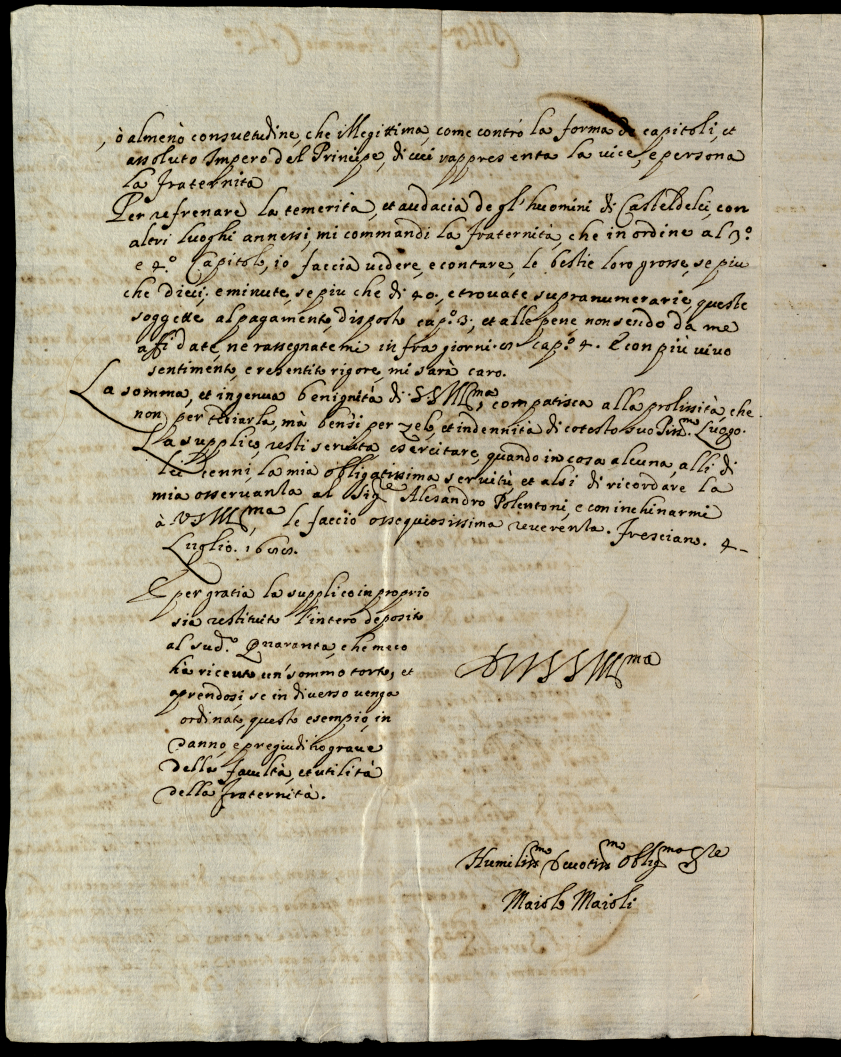 , ò almeno consuetudine, che illegittima, come contro la forma de capitoli, et
assoluto Impero del Principe, di cui rappresenta la vice, e persona
la Fraternita
Per refrenare la temerità, et audacia de gl'huomini di Casteldelci, con
altri luoghi annessi, mi commandi la fraternità, che in ordine al 3.º
e 4.º Capitoli, io faccia vedere, e contare, le bestie loro grosse, se più
che dieci, e minute, se piu che di 40, e trovate supranumerarie, queste
soggette al pagamento, disposto cap.º 3; et alle pene non sendo da me
affidate, ne rassegnatemi infra giorni cap.º 4. E con più vivo
sentimento, e resentito rigore, mi sarà caro.
La somma, et ingenua benignità di SS Ill.ma, compatisca alla prolissità, che
non per tediarla, mà bensi per zelo, et indennità di cotesto suo Luogo.
La supplico, resti servita esercitare, quando in cosa alcuna, alli di
lei cenni la mia obligatissima servitù, et alsi di ricordare la
mia osservanza al Sig.re Alesandro Polentoni, e con inchinarmi
à VS Ill.ma le faccio ossequiosissima reverenza. Fresciano. 4
Luglio. 16
E per gratia la supplico in proprio
sia restituito l'intero deposito
al sud.º Quaranta, che meco
hà riceuto un'sommo torto, et
aprendosi, se in diverso venga
ordinato, questo esempio, in
danno, e pregiuditio grave
della facultà, et utilità
della fraternità.
D VS Ill.ma
Humiliss.mo Devotiss.mo Oblig.mo S.re
Maiolo Maioli